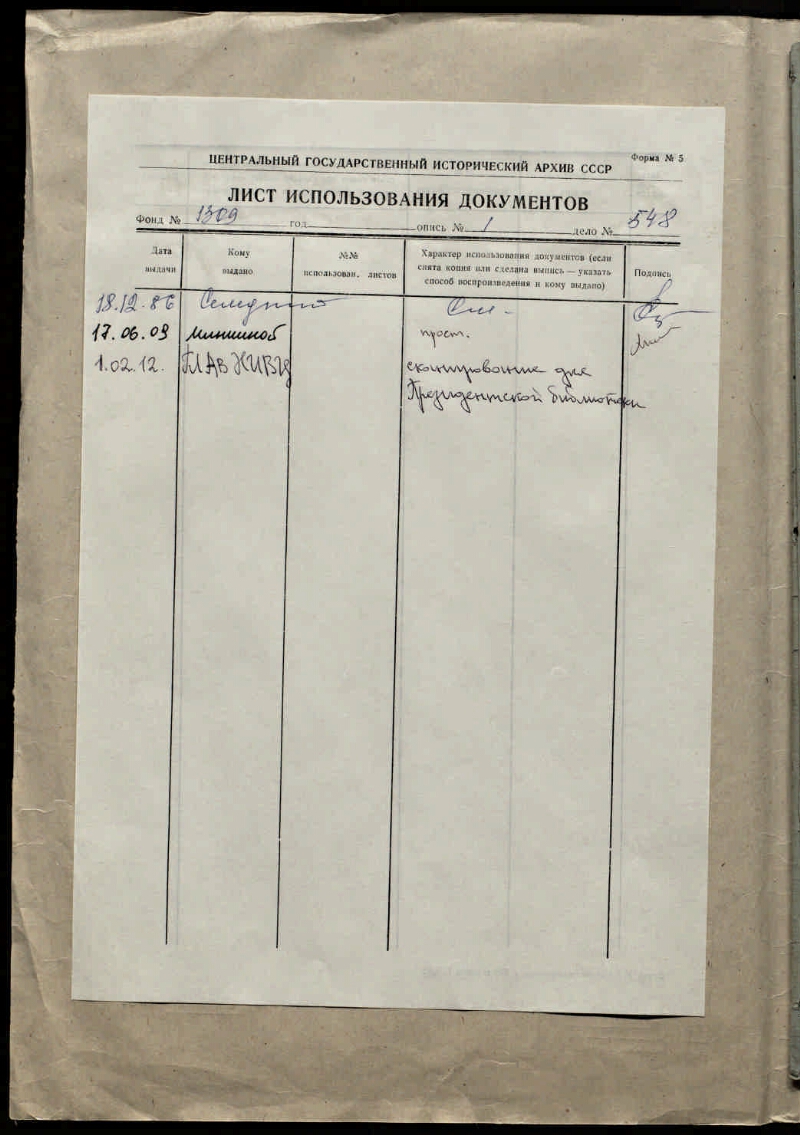 Форма № 5
ЦЕНТРАЛЬНЫЙ ГОСУДАРСТВЕННЫЙ ИСТОРИЧЕСКИЙ АРХИВ СССР
ЛИСТ ИСПОЛЬЗОВАНИЯ ДОКУМЕНТОВ
Фонд № год опись № 1 дело № 548
Дата выдачи
Кому выдано
№№ использован. листов
Характер использования документов (если
снята копия или сделана выпись — указать
способ воспроизведения и кому выдано)
Подпись
18.12.86
17.06.09 просм.
1.02.12. сканирование для
Президентской библиотеки